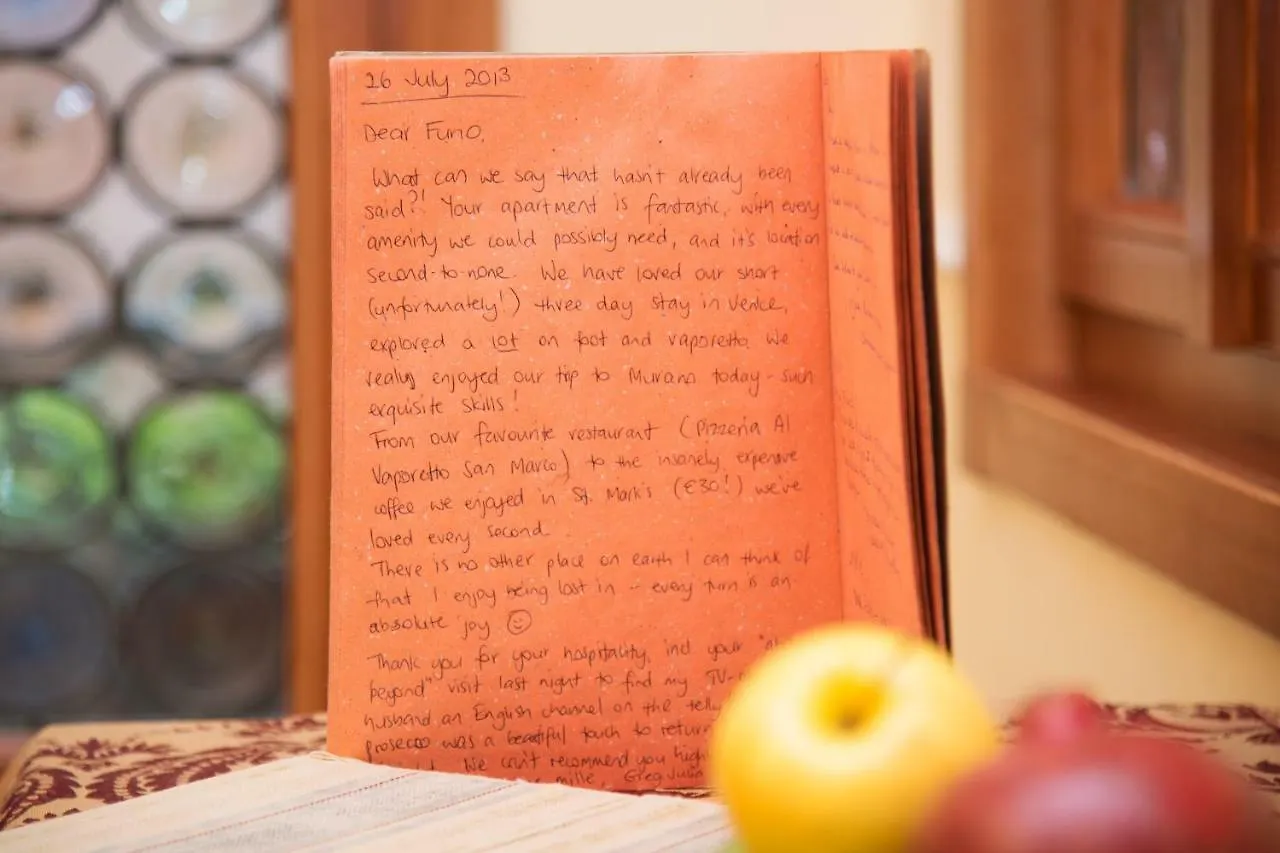 26 July 2013
Dear Fumo,
What can we say that hasn't already been
said?! Your apartment is fantastic, with every
amenity we could possibly need, and it's location
second-to-none. We have loved our short
(unfortunately!) three day stay in Venice,
explored a lot on foot and vaporetto. We
really enjoyed our trip to Murano today - such
exquisite skills!
From our favourite restaurant (Pizzeria Al
Vaporetto San Marco) to the insanely expensive
coffee we enjoyed in St. Mark's (€30!) we've
loved every second.
There is no other place on earth I can think of
that I enjoy being lost in - every turn is an
absolute joy ☺
Thank you for your hospitality, incl your
beyond" visit last night to find my TV-
husband an English channel on the telly
prosecco was a beautiful touch to return
We can't recommend you high
mille, Greg, Julia